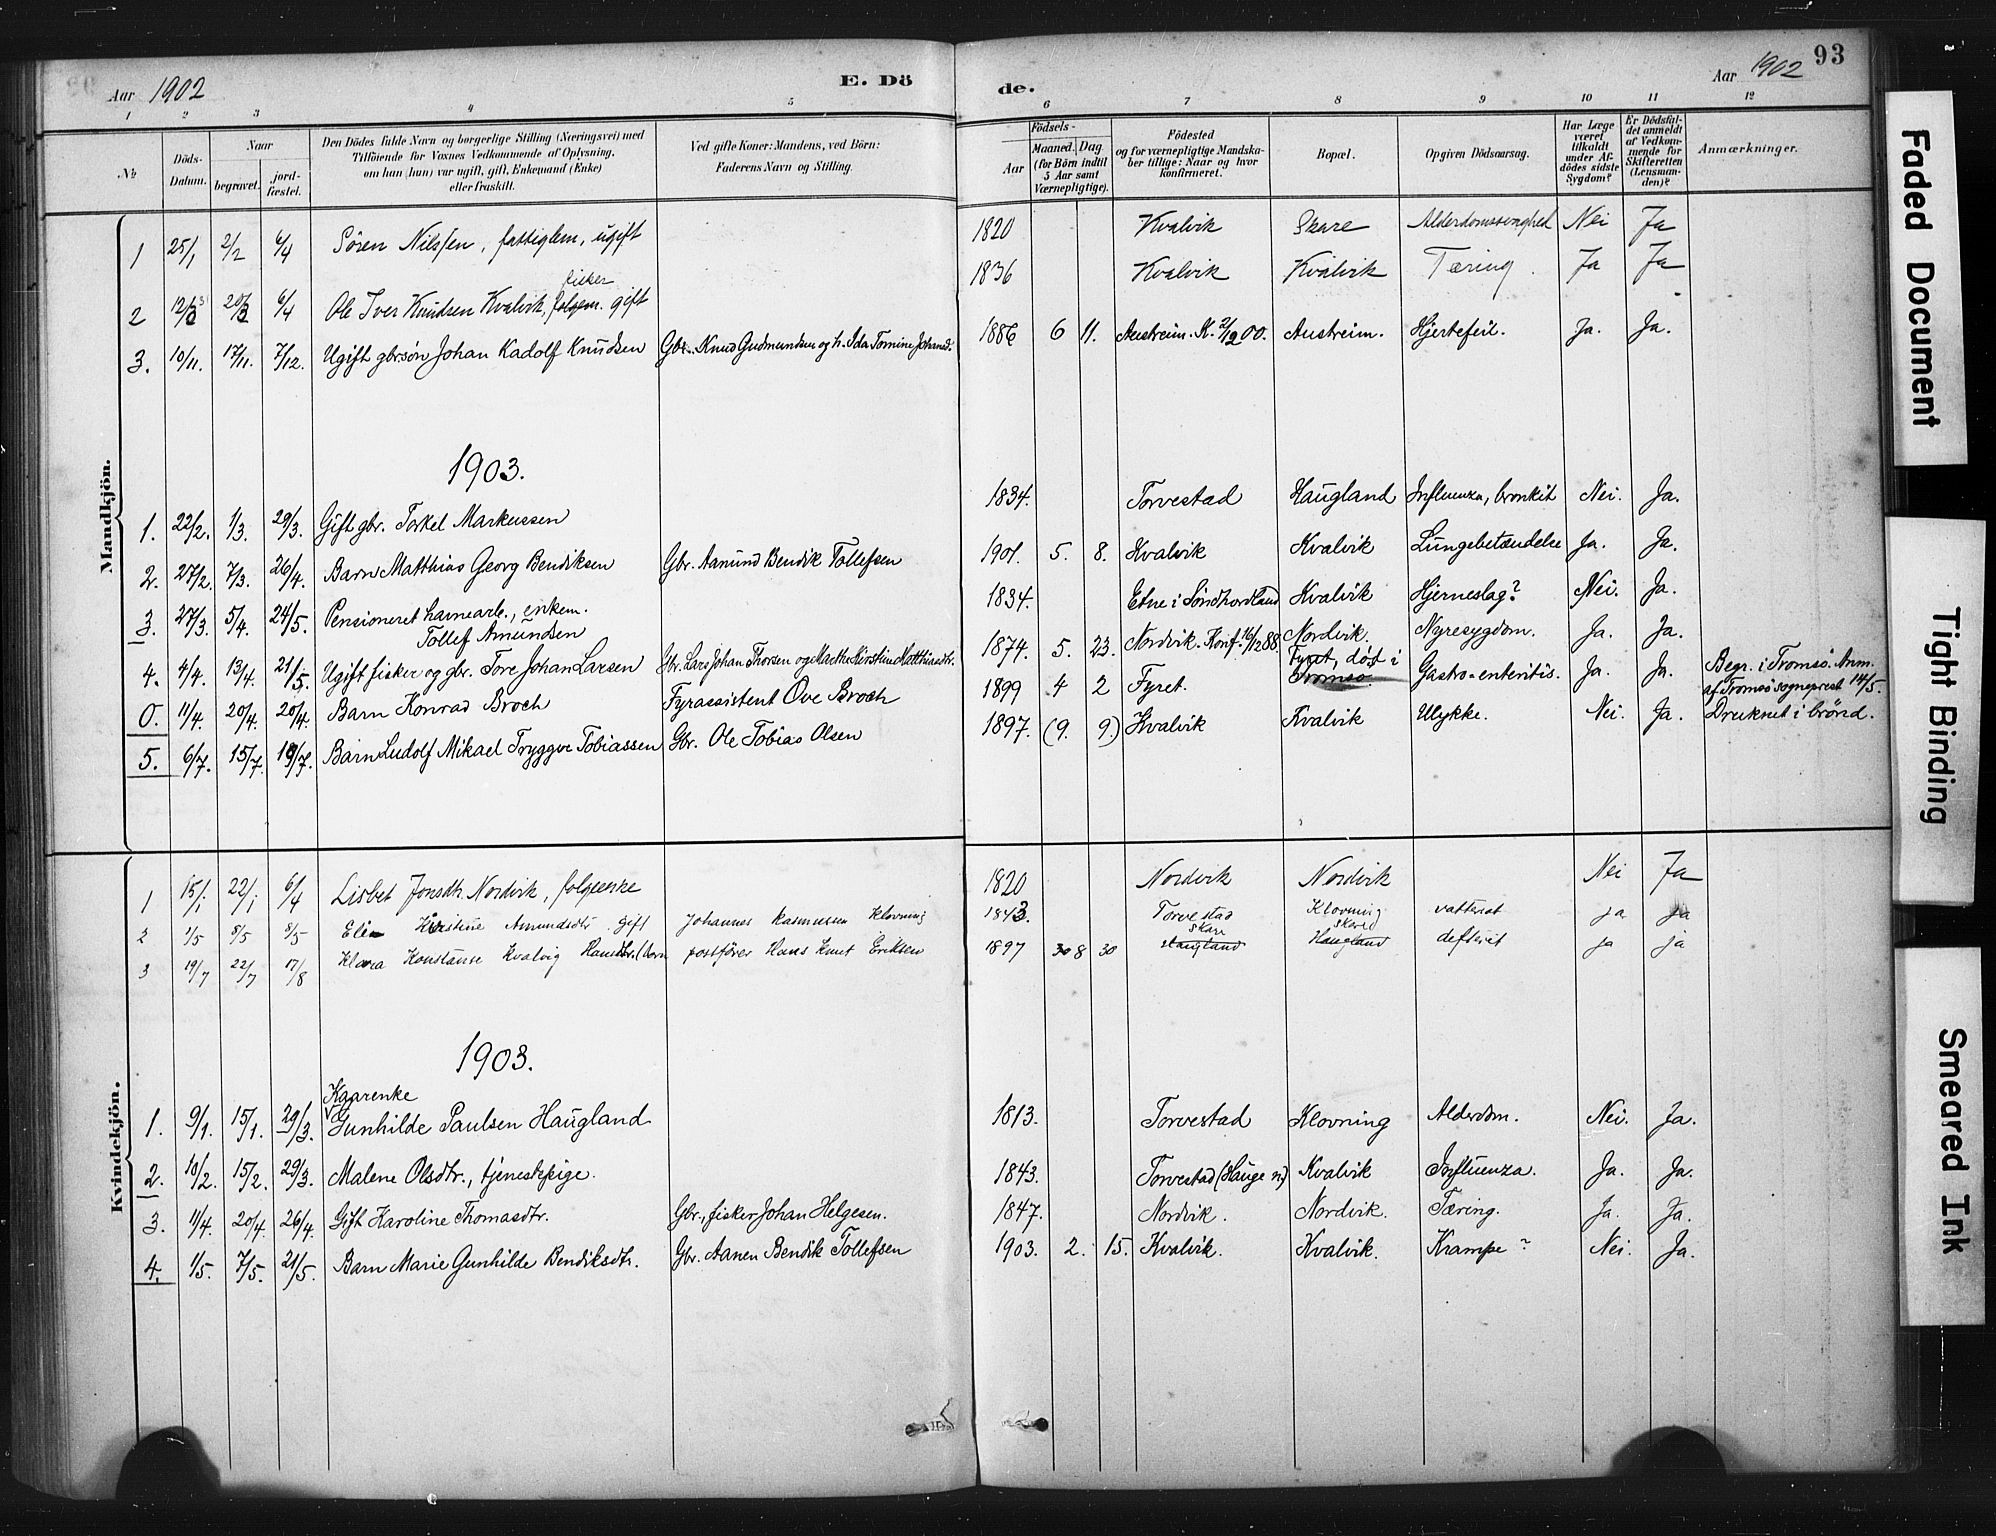 Aar 1902 E. Dö
de. Aar 1902 93
1 2 3 4 5 6 7 8 9 10 11 12
№ Döds-Datum. Naar begravet. jord-fæstet. Den Dödes fulde Navn og borgerlige Stilling (Næringsvei) med Tilföiende for Voxnes Vedkommende af Oplysning. om han (hun) var ugift, gift, Enkemand (Enke) eller fraskilt. Ved gifte Koner: Mandens, ved Börn: Faderens Navn og Stilling. Födsels- Aar Maaned. Dag (for Börn indtil 5 Aar samt Værnepligtige). Födested og for værnepligtige Mandska-ber tillige: Naar og hvor konfirmeret. Bopæl. Opgiven Dödsaarsag. Har Læge været tilkaldt under Af-dödes sidste Sygdom? Er Dödsfal-det anmeldt af Vedkom-mende for Skifteretten (Lensman-den)? Anmærkninger.
Mandkjön.
1 25/1 2/2 6/4 Sören Nilssen, fattiglem, ugift 1820 Kvalvik Skare Alderdomssvaghed Nei Ja
fisker
2 12/3 20/3 6/4 Ole Iver Knudsen Kvalvik, folgem. gift 1836 Kvalvik Kvalvik Tæring. Ja Ja
3. 10/11. 17/11. 7/12. Ugift gbr.sön Johan Kadolf Knudsen Gbr. Knud Gudmundsen og h. Ida Tomine Johansd. 1886 6 11. Austreim. K. 2/12 00. Austreim. Hjertefeil. Ja. Ja.
1903.
1. 22/2. 1/3. 29/3. Gift gbr. Torkel Markussen 1834. Torvestad Haugland Influenza, bronkit Nei. Ja.
2. 27/2. 7/3. 26/4. Barn Matthias Georg Bendiksen Gbr. Aamund Bendik Tollefsen 1901. 5. 8. Kvalvik Kvalvik Lungebetændelse Ja. Ja.
3. 27/3. 5/4. 24/5. Pensioneret havnearb., enkem. 1834. Etne i Söndhordland Kvalvik Hjerneslag? Nei. Ja.
Tollef Amundsen
4. 4/4. 13/4. 21/5. Ugift fisker og gbr. Tore Johan Larsen Gbr. Lars Johan Thorsen og Marthe Kirstine Matthiasdtr. 1874. 5. 23. Nordvik. Konf. 16/12 88 Nordvik. Nyresygdom. Ja. Ja.
0. 11/4. 20/4. 20/4. Barn Konrad Broch Fyrassistent Ove Broch 1899 4 2 Fyret. Fyret, döst i Tromsö. Gastro-enteritis. Ja. Ja. Begr. i Tromsö. Anm. af Tromsö sogneprest 14/5.
5. 6/7. 15/7. 19/7. Barn Ludolf Mikael Tryggve Tobiassen Gbr. Ole Tobias Olsen 1897. (9. 9.) Kvalvik Kvalvik Ulykke. Nei. Ja. Druknet i brönd.
Kvindekjön.
1 15/1 22/1 6/4 Lisbet Jonsdtr. Nordvik, folgeenke 1820 Nordvik Nordvik Nei Ja
2 1/5 8/5 8/5 Elen Kirstine Amundsdtr gift Johannes Rasmussen Klovning 1843. Torvestad Klovning vattersot ja ja
Skare Skared
3 19/7 22/7 17/8 Klara Konstanse Kvalvig Hansdtr. (barn postförer Hans Knut Eriksen 1897 30 8 30 Haugland Haugland defterit ja ja
1903.
Kaarenke
1. 9/1. 15/1. 29/3. Gunhilde Paulsen Haugland 1813. Torvestad Klovning Alderdom. Nei. Ja.
2. 10/2. 15/2. 29/3. Malene Olsdtr., tjenestepige. 1843. Torvestad (Hauge n.) Kvalvik Influenza. Ja. Ja.
3. 11/4. 20/4. 26/4. Gift Karoline Thomasdtr. Gbr., fisker Johan Helgesen. 1847. Nordvik. Nordvik. Tæring. Ja. Ja.
4. 1/5. 7/5. 21/5. Barn Marie Gunhilde Bendiksdtr. Gbr. Aanen Bendik Tollefsen 1903. 2. 15. Kvalvik. Kvalvik. Krampe? Nei. Ja.
Faded Document
Tight Binding
Smeared Ink